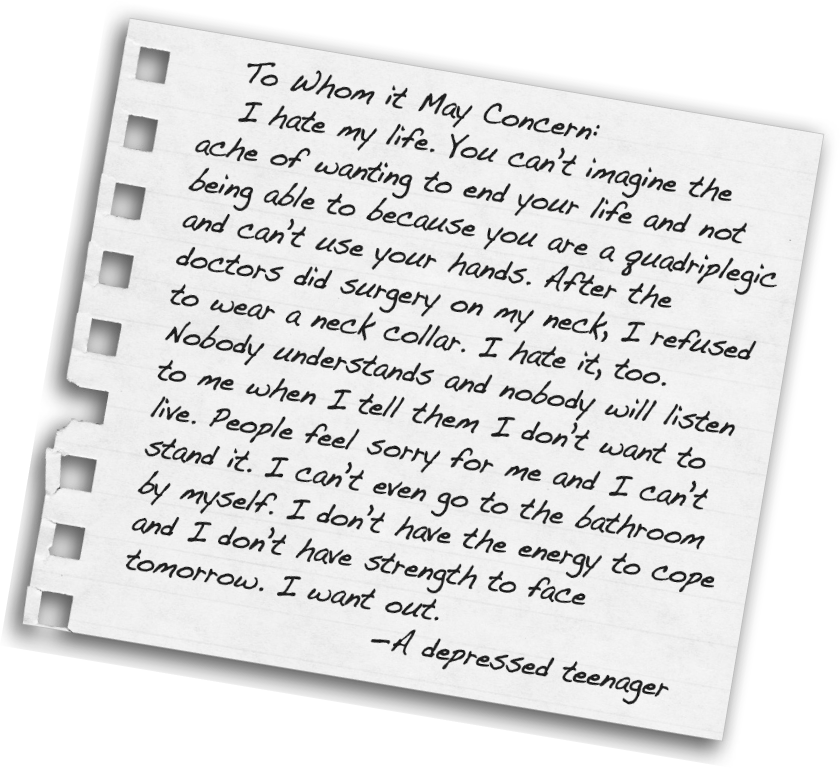 To Whom it May Concern:
I hate my life. You can't imagine the
ache of wanting to end your life and not
being able to because you are a quadriplegic
and can't use your hands. After the
doctors did surgery on my neck, I refused
to wear a neck collar. I hate it, too.
Nobody understands and nobody will listen
to me when I tell them I don't want to
live. People feel sorry for me and I can't
stand it. I can't even go to the bathroom
by myself. I don't have the energy to cope
and I don't have strength to face
tomorrow. I want out.
-A depressed teenager